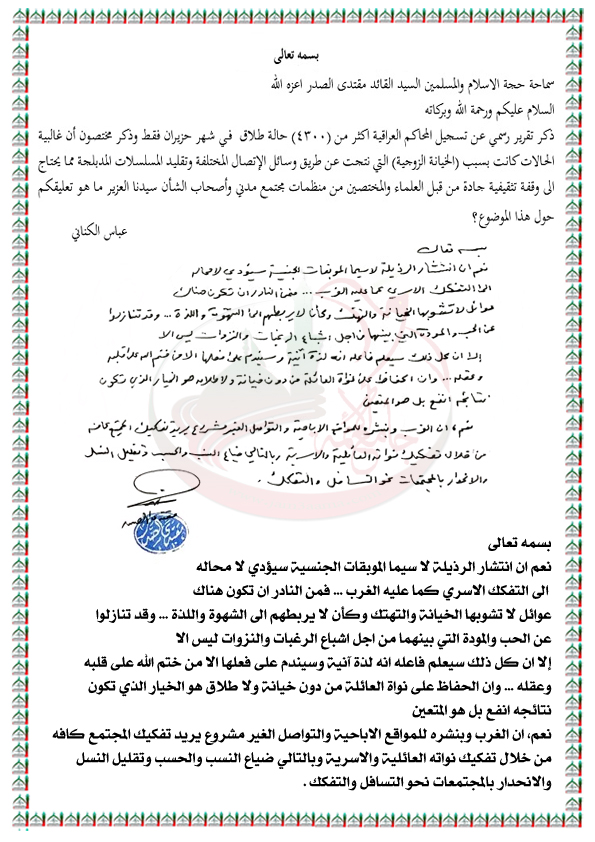 بسمه تعالى
سماحة حجة الاسلام والمسلمين السيد القائد مقتدى الصدر اعزه الله
السلام عليكم ورحمة الله وبركاته
ذكر تقرير رسمي عن تسجيل المحاكم العراقية اكثر من (٤٣٠٠) حالة طلاق في شهر حزيران فقط وذكر مختصون أن غالبية
الحالات كانت بسبب (الخيانة الزوجية) التي نتجت عن طريق وسائل الإتصال المختلفة وتقليد المسلسلات المدبلجة مما يحتاج
الى وقفة تثقيفية جادة من قبل العلماء والمختصين من منظمات مجتمع مدني وأصحاب الشأن سيدنا العزيز ما هو تعليقكم
حول هذا الموضوع؟
عباس الكناني
بسمه تعالى
نعم ان انتشار الرذيلة لا سيما الموبقات الجنسية سيؤدي لا محاله
الى التفكك الاسري كما عليه الغرب ... فمن النادر ان تكون هناك
عوائل لا تشوبها الخيانة والتهتك وكأن لا يربطهم الا الشهوة واللذة ... وقد تنازلوا
عن الحب والمودة التي بينهما من اجل اشباع الرغبات والنزوات ليس الا
إلا ان كل ذلك سيعلم فاعله انه لذة آنية وسيندم على فعلها الا من ختم الله على قلبه
وعقله ... وان الحفاظ على نواة العائلة من دون خيانة ولا طلاق هو الخيار الذي تكون
نتائجه انفع بل هو المتعين
نعم، ان الغرب وبنشره للمواقع الاباحية والتواصل الغير مشروع يريد تفكيك المجتمع كافه
من خلال تفكيك نواته العائلية والاسرية وبالتالي ضياع النسب والحسب وتقليل النسل
والانحدار بالمجتمعات نحو التسافل والتفكك .
بسمه تعالى
نعم ان انتشار الرذيلة لا سيما الموبقات الجنسية سيؤدي لا محاله
الى التفكك الاسري كما عليه الغرب ... فمن النادر ان تكون هناك
عوائل لا تشوبها الخيانة والتهتك وكأن لا يربطهم الى الشهوة واللذة ... وقد تنازلوا
عن الحب والمودة التي بينهما من اجل اشباع الرغبات والنزوات ليس الا
إلا ان كل ذلك سيعلم فاعله انه لذة آنية وسيندم على فعلها الا من ختم الله على قلبه
وعقله ... وان الحفاظ على نواة العائلة من دون خيانة ولا طلاق هو الخيار الذي تكون
نتائجه انفع بل هو المتعين
نعم، ان الغرب وبنشره للمواقع الاباحية والتواصل الغير مشروع يريد تفكيك المجتمع كافه
من خلال تفكيك نواته العائلية والاسرية وبالتالي ضياع النسب والحسب وتقليل النسل
والانحدار بالمجتمعات نحو التسافل والتفكك .